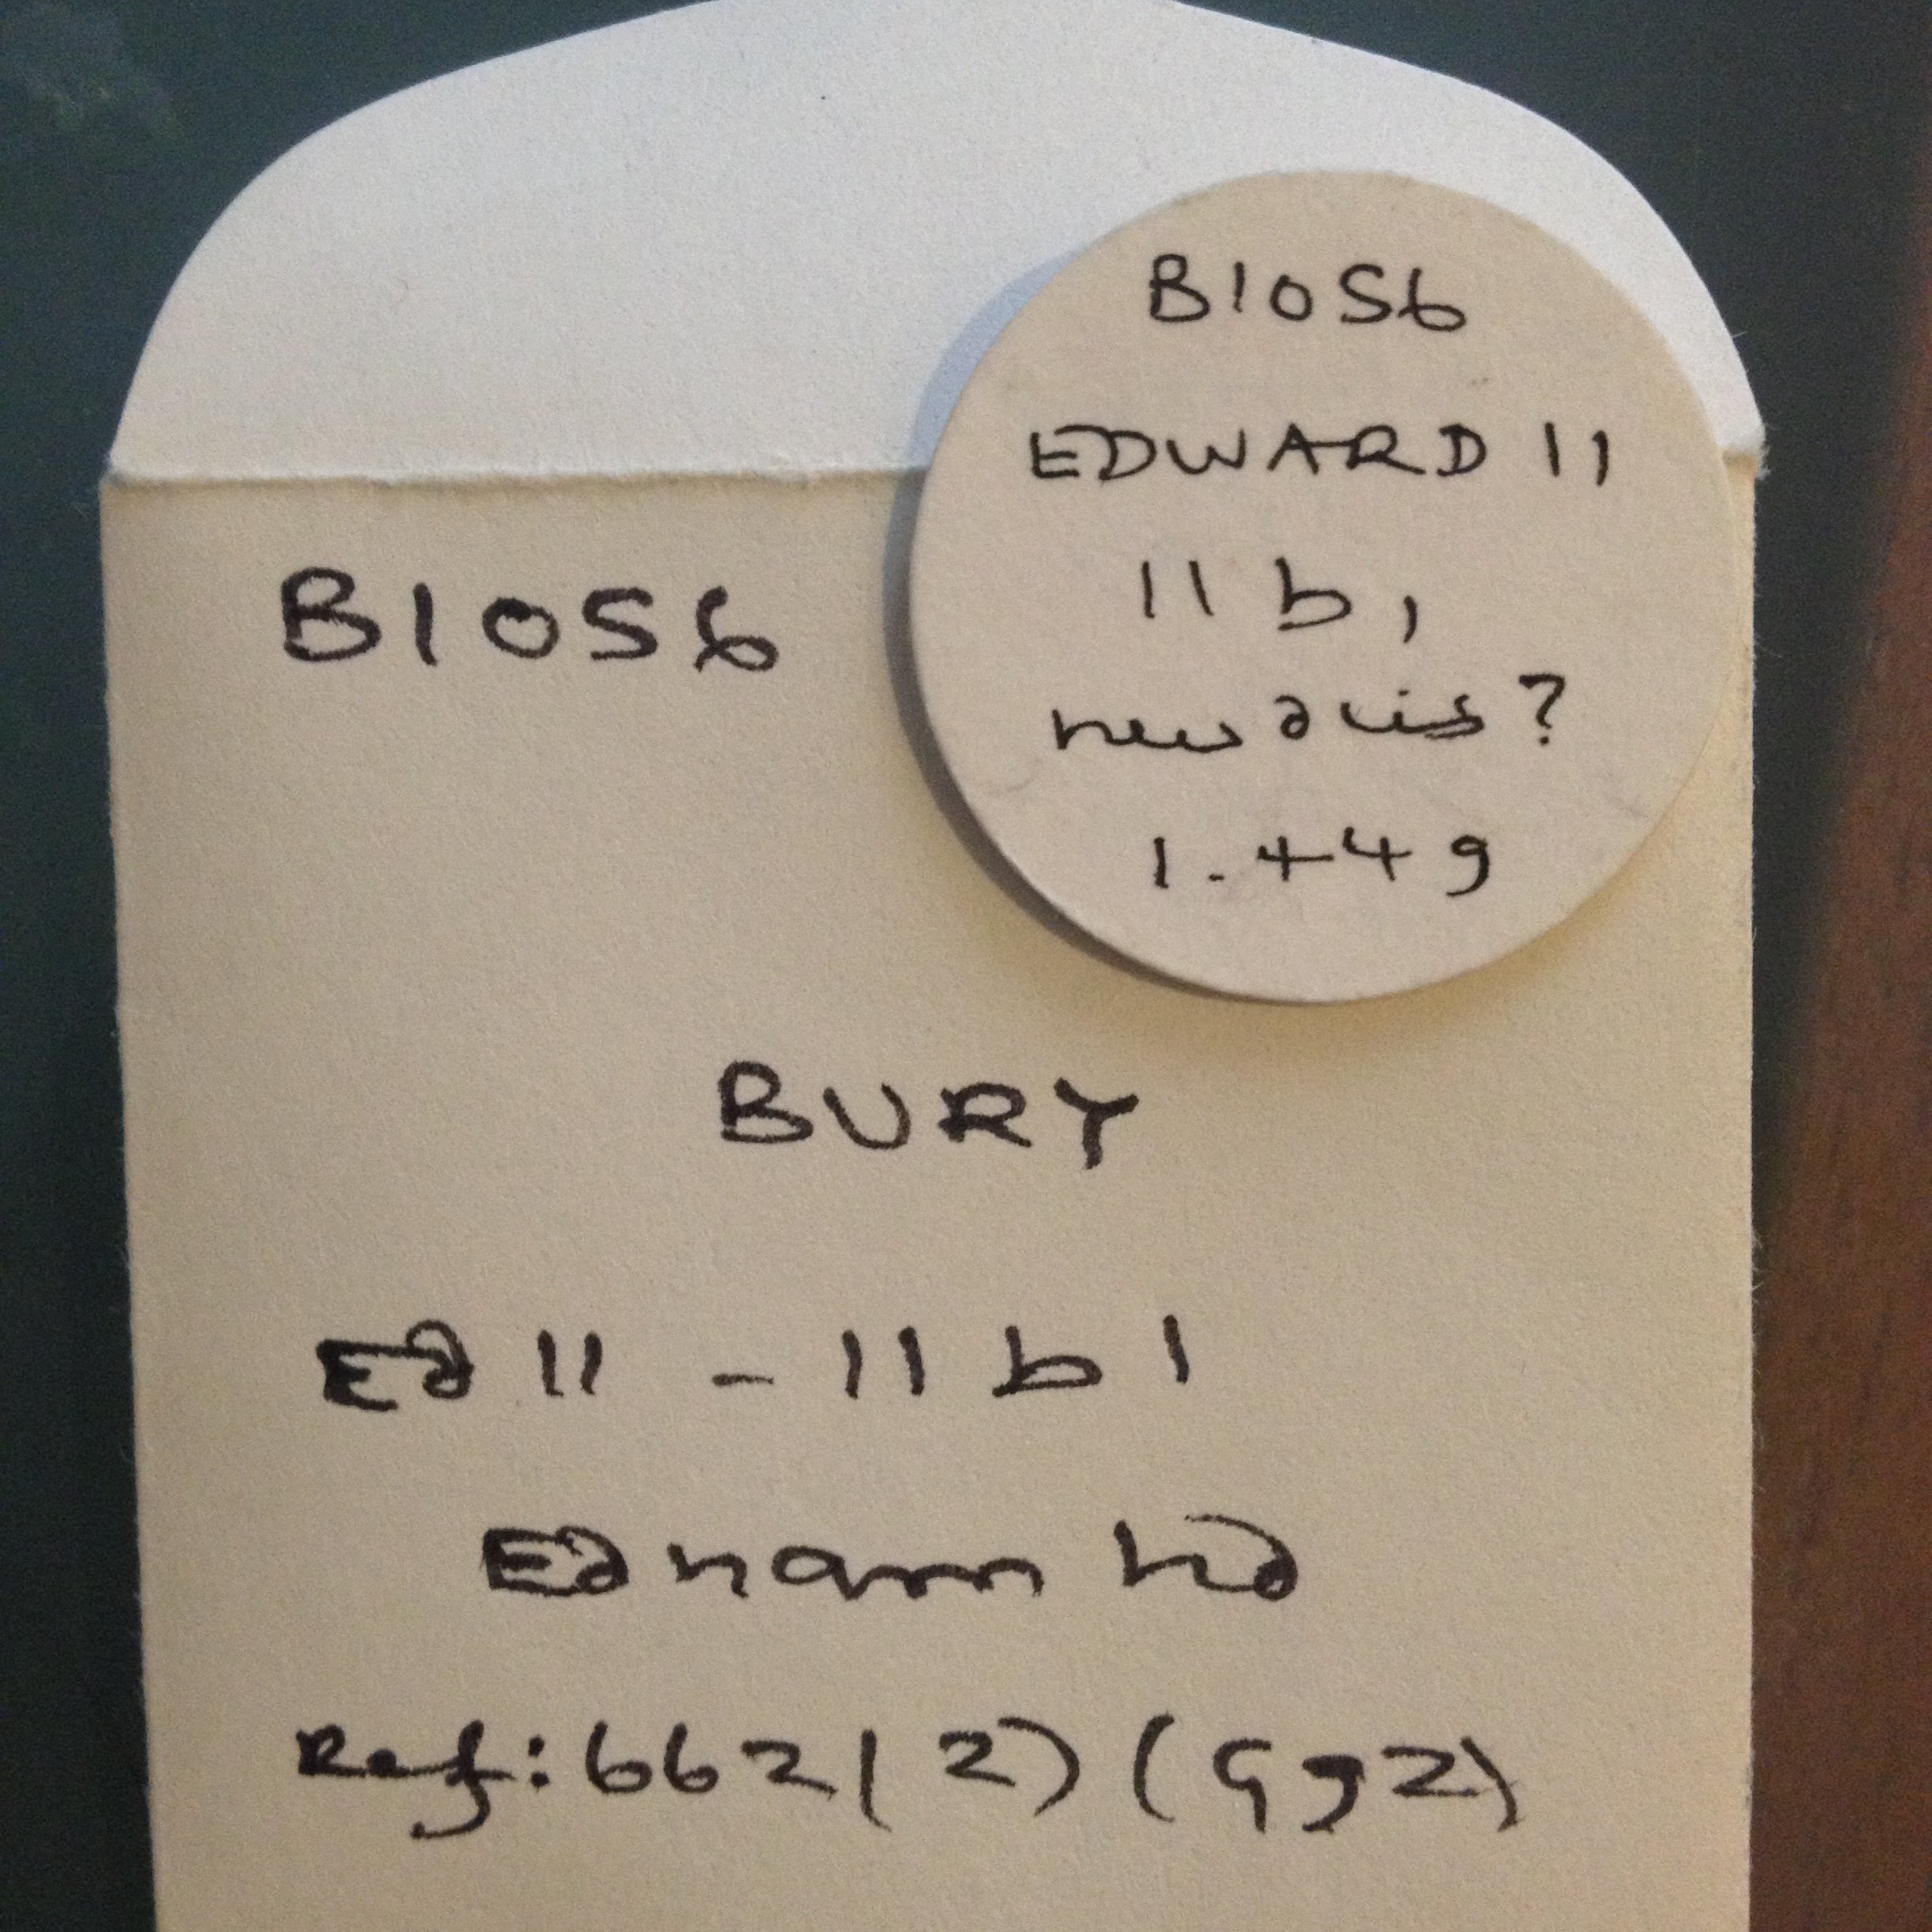 B1056
EDWARD 11
11 b 1
new dies?
1.44g
B1056
BURY
Ed 11 - 11 b 1
Ednam hd
Ref: 662(2) (992)